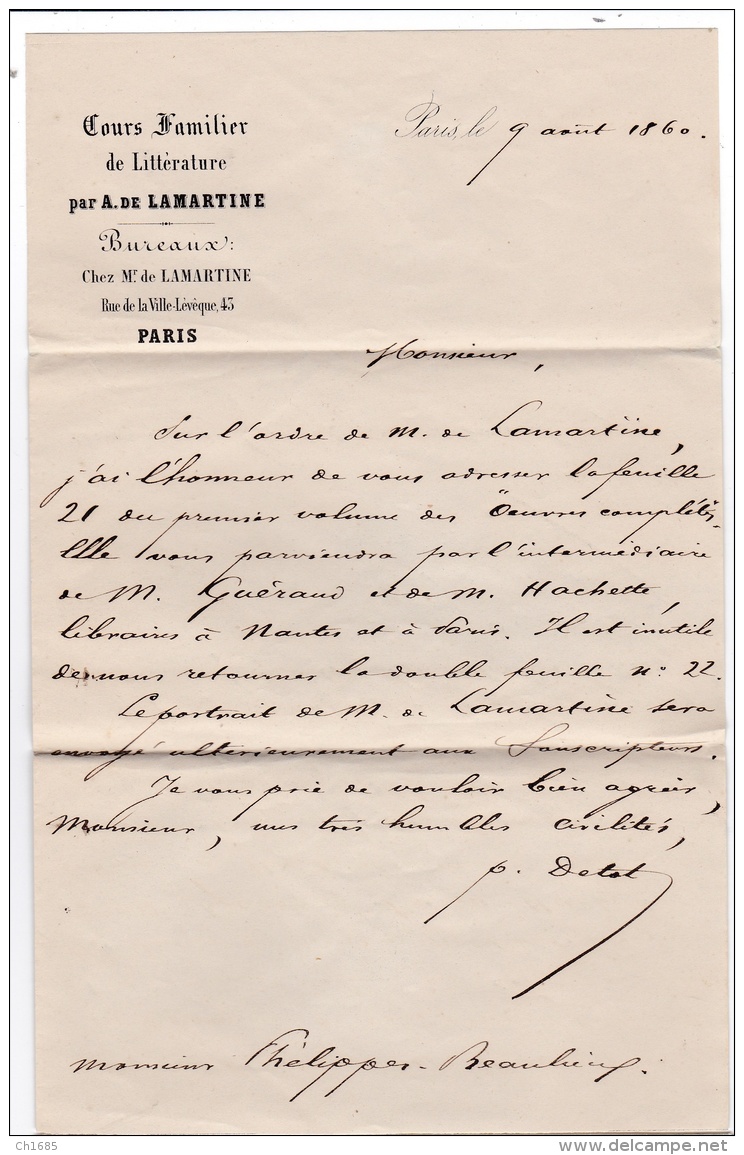 Cours Familier
de Littérature
par A. DE LAMARTINE
Bureaux:
Chez Mr. de LAMARTINE
Rue de la Ville-Lévèque, 43
PARIS
Paris, le 9 août 1860.
Monsieur,
Sur l'ordre de M. de Lamartine,
j'ai l'honneur de vous adresser la feuille
21 du premier volume des Oeuvres complètes.
Elle vous parviendra par l'intermédiaire
de M. Guéraud et de M. Hachette,
libraires à Nantes et à Paris. Il est inutile
de nous retourner la double feuille n: 22.
Le portrait de M. de Lamartine sera
envoyé ultérieurement aux Souscripteurs.
Je vous prie de vouloir bien agréer,
Monsieur, mes très humbles civilités,
p. Detot
monsieur Phelippes-Beaulieu.
Ch1685
www.delcampe.net